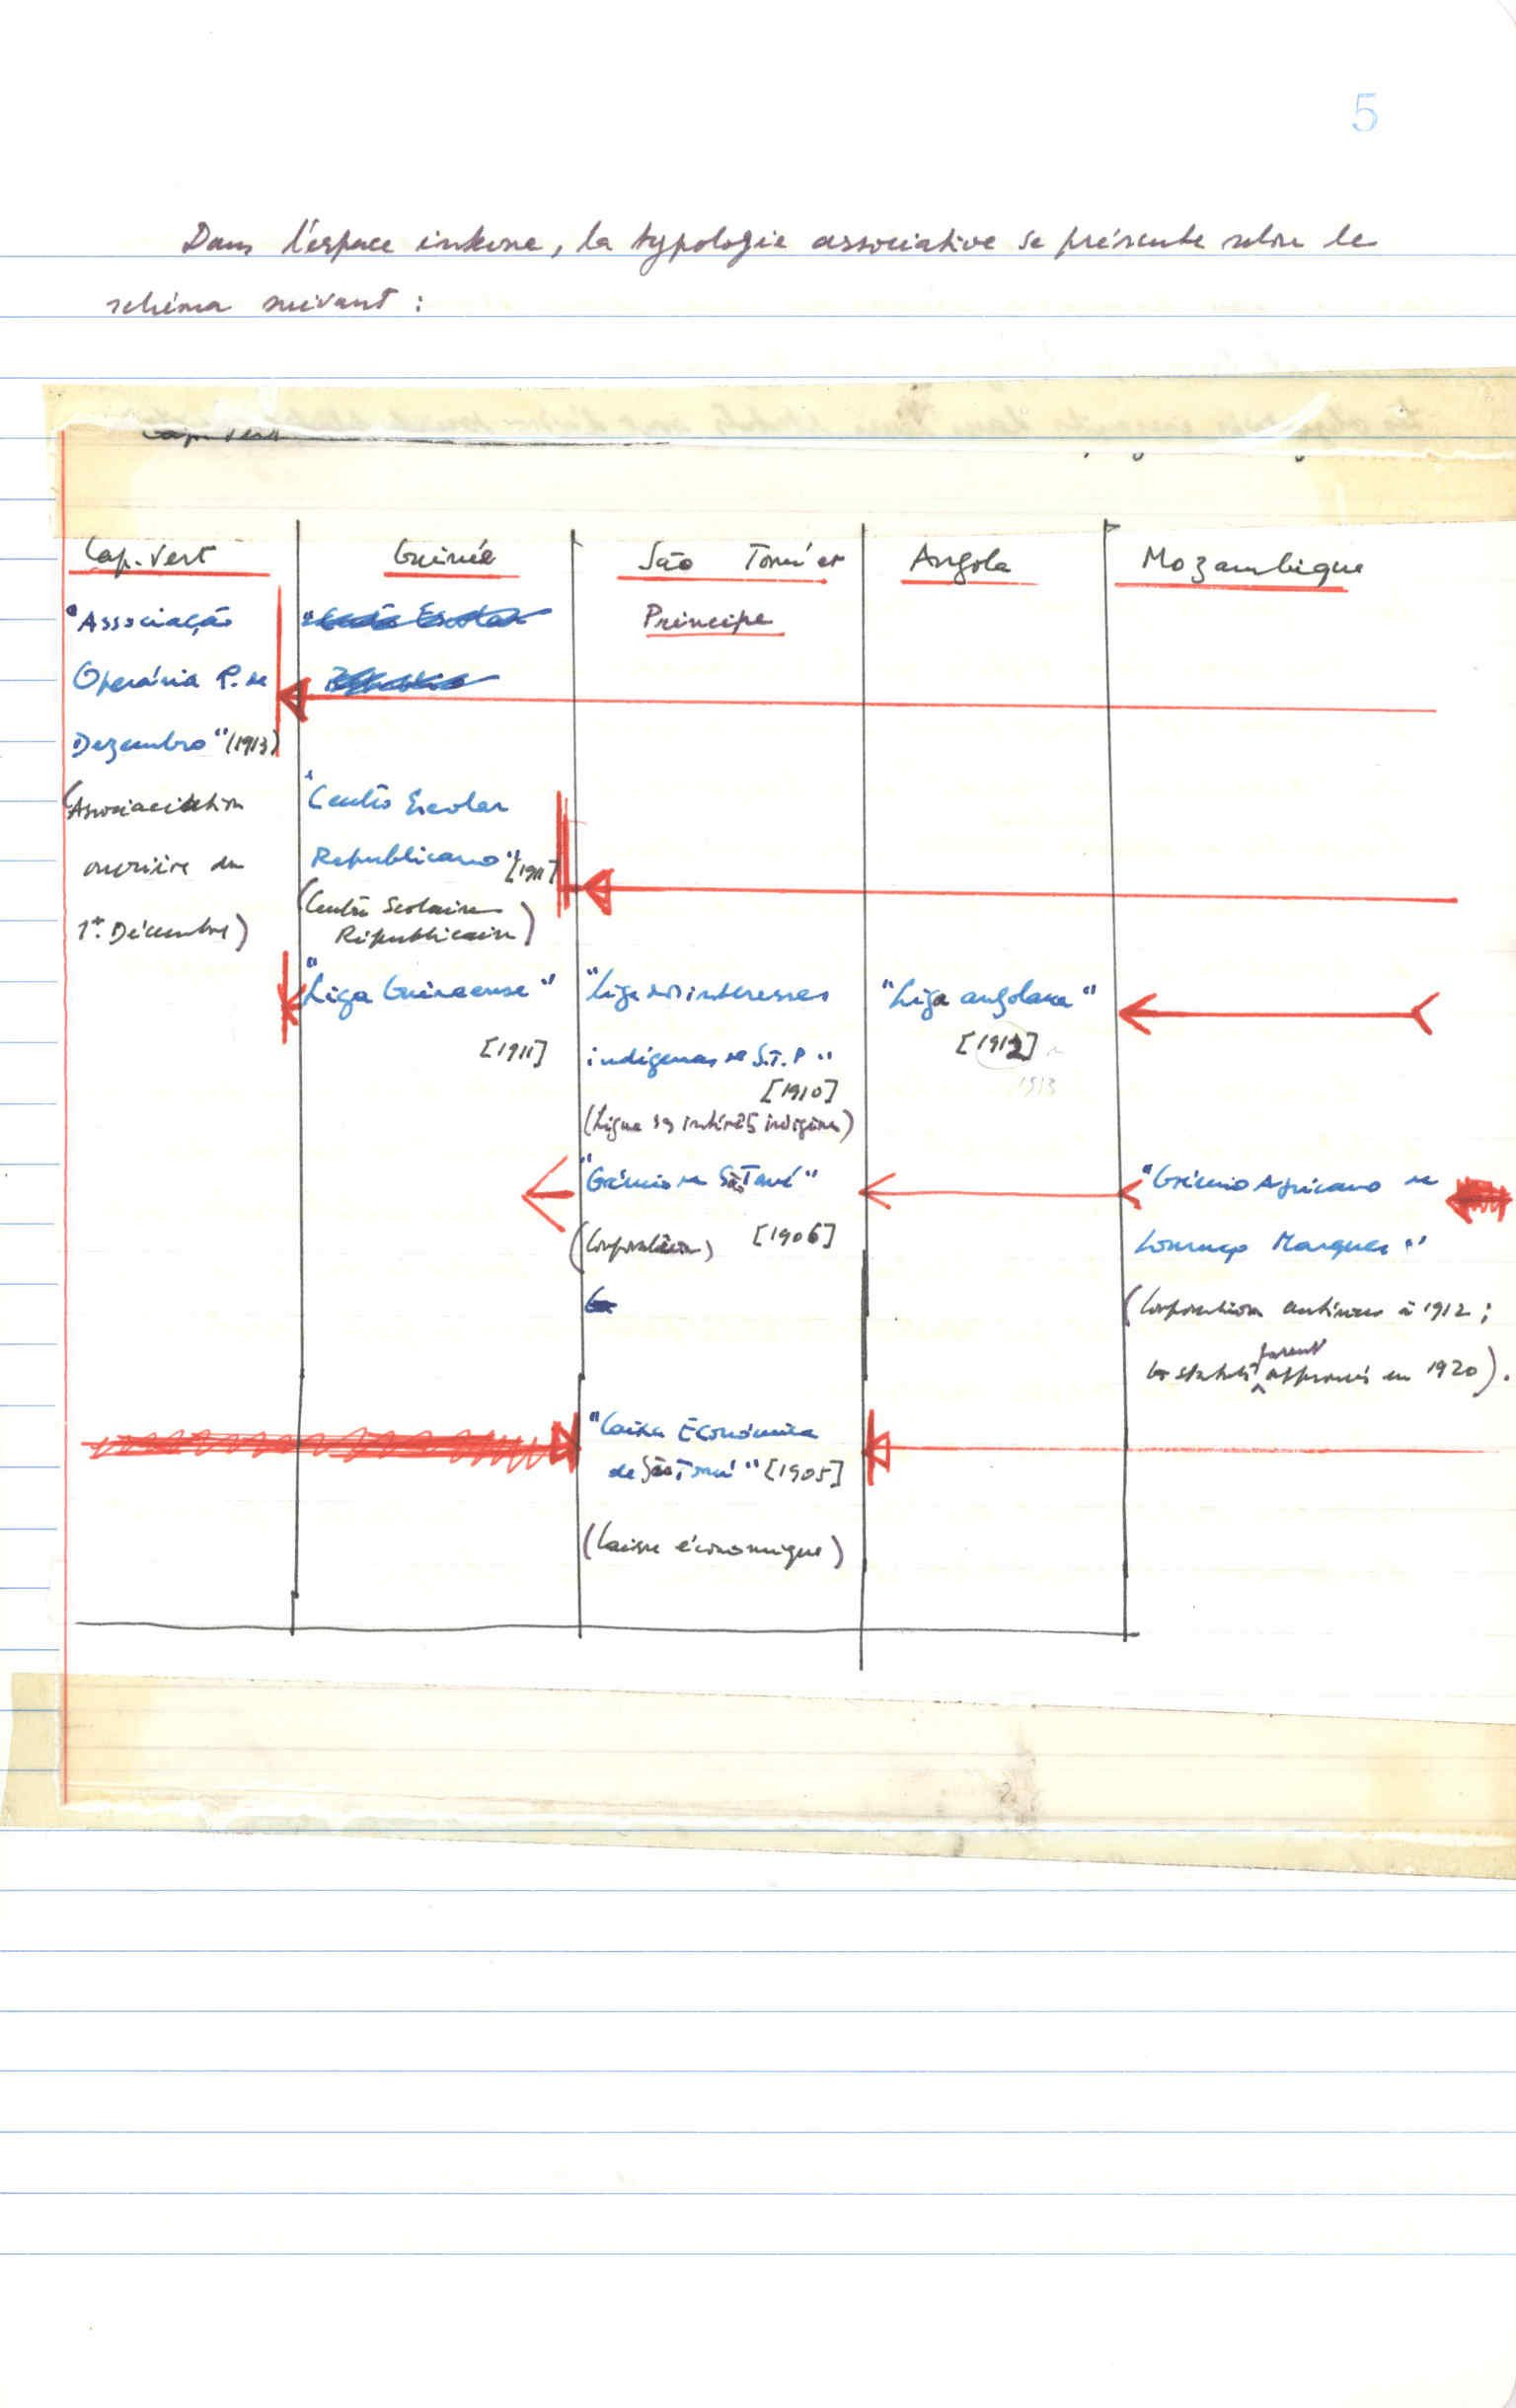 5
Dans l'espace interne, la typologie associative se présente selon le
schéma suivant :
Cap. Vert
Cap. Vert
Guinée
São Tomé et
Principe
Angola
Mozambique
"Associação
Operária 1º de
Dezembro" (1913)
(Association
ouvrière du
1er Décembre)
"Centro Escolar
"Centro Escolar
Republicano" [1911]
(Centre Scolaire
Républicain)
"Liga Guineense"
[1911]
"Liga dos interesses
indígenas de S.T.P"
[1910]
(Ligue des intérêts indigènes)
"Grémio de São Tomé"
(Corporation) [1906]
"Caixa Económica
de São Tomé" [1905]
(Caisse économique)
"Liga angolana"
[1912]
1913
"Grémio Africano de
Lourenço Marques"
(Corporation antérieure à 1912 ;
les statuts furent approuvés en 1920).